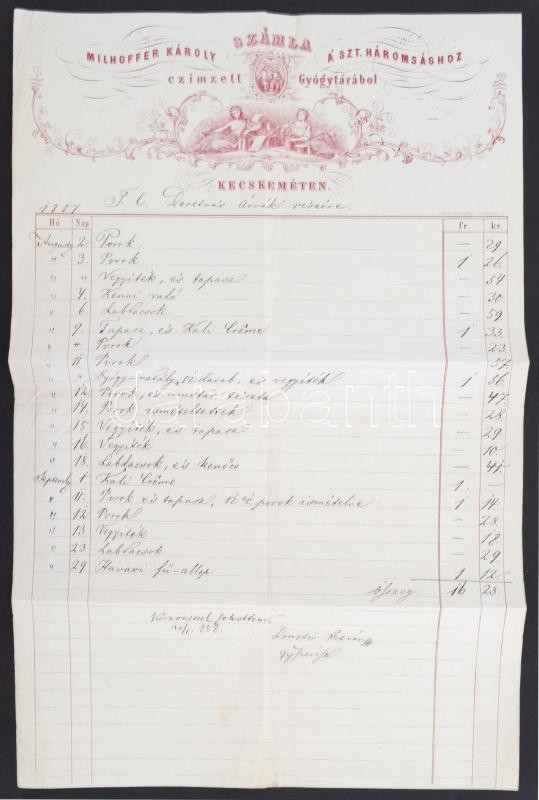 SZÁMLA
MILHOFFER KÁROLY A' SZT. HÁROMSÁGHOZ
czimzett Gyógytárából
KECSKEMÉTEN.
T. C. Árvák részére.
Hó Nap fr. kr.
Augusty 2. Porok. — 29.
" 3. Porok 1 26.
" " Vegyíték, és tapasz — 54.
" 4. Kenni való — 30.
" 6. Labdacsok — 59.
" 9. Tapasz, és Kali Crême 1 33.
" " Porok — 23.
" 11. Porok — 57.
" " 12 darab, és vegyíték 1 56.
" 12. Porok, és mustár tészta — 47.
" 14. Porok ismételtettek — 28.
" 15. Vegyíték, és tapasz — 29.
" 16. Vegyíték — 10.
" 18. Labdacsok, és kenőcs — 41.
Septemb. 1. Kali Crême 1 —
" 11. Porok és tapasz, 12 porok ismételve. 1 14.
" 12. Porok — 28.
" 13. Vegyíték — 18.
" 23. Labdacsok — 29.
" 29. Havasi fű-allop 1 12.
összeg: 16 23.
darabanth